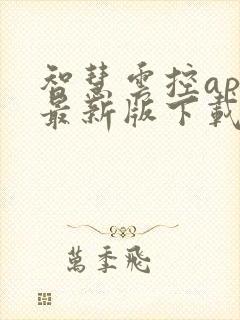 智慧雲控ap
最新版下載
萬季飛